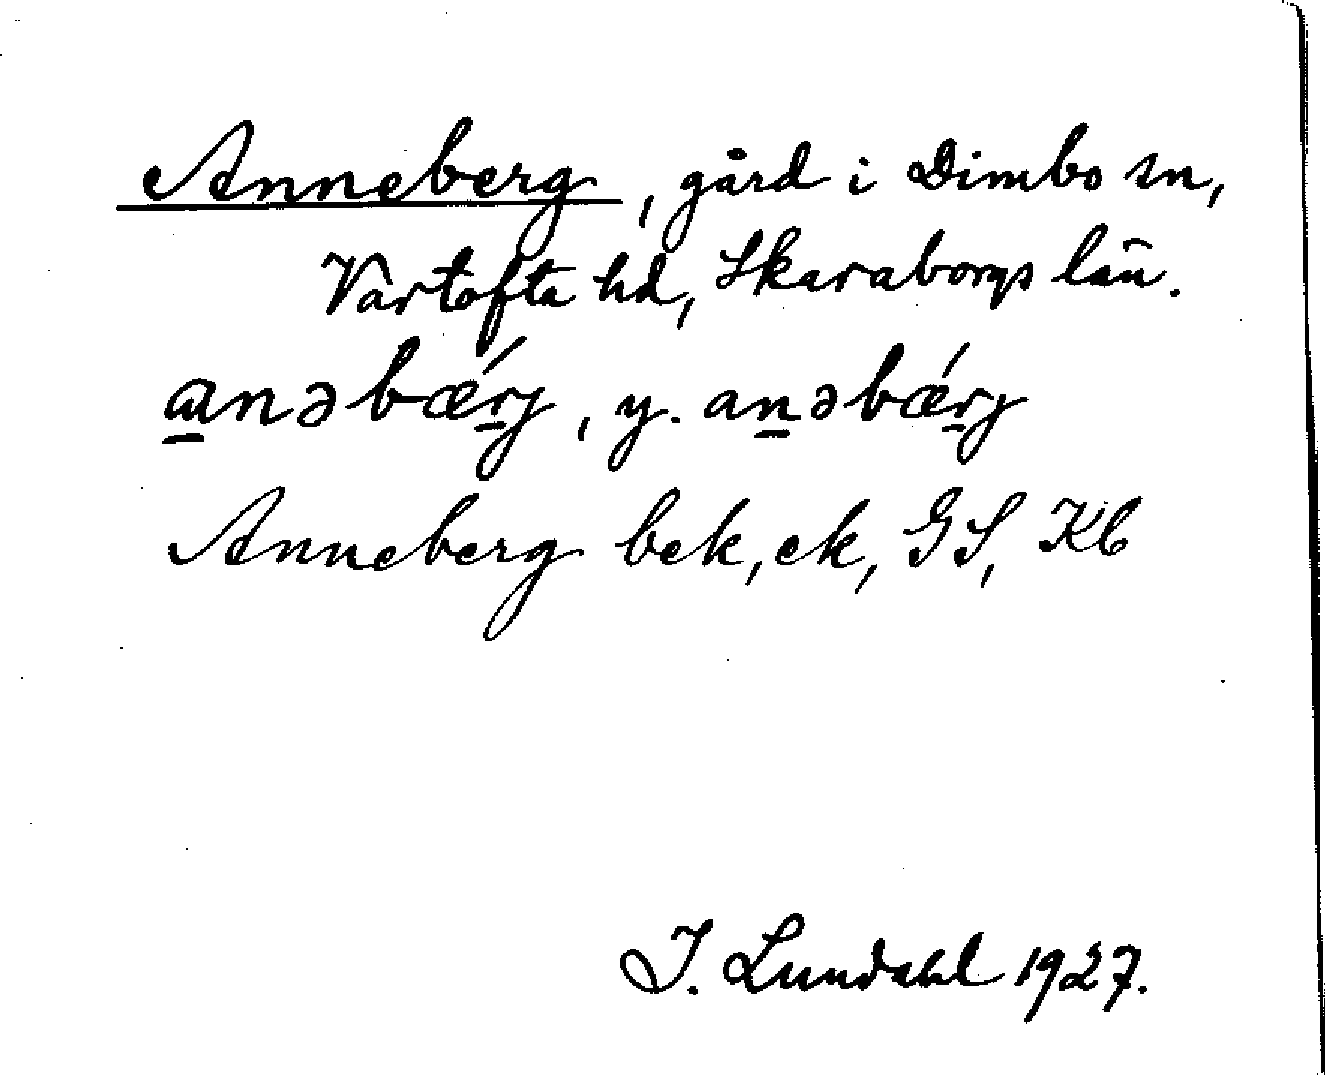 Anneberg, gård i Dimbo sn,
Vartofta hd, Skaraborgs län.
a̱nəbǽṟj, y. aṉəbǽṟj
Anneberg bek, ek, GS, Kb
I. Lundahl 1927.